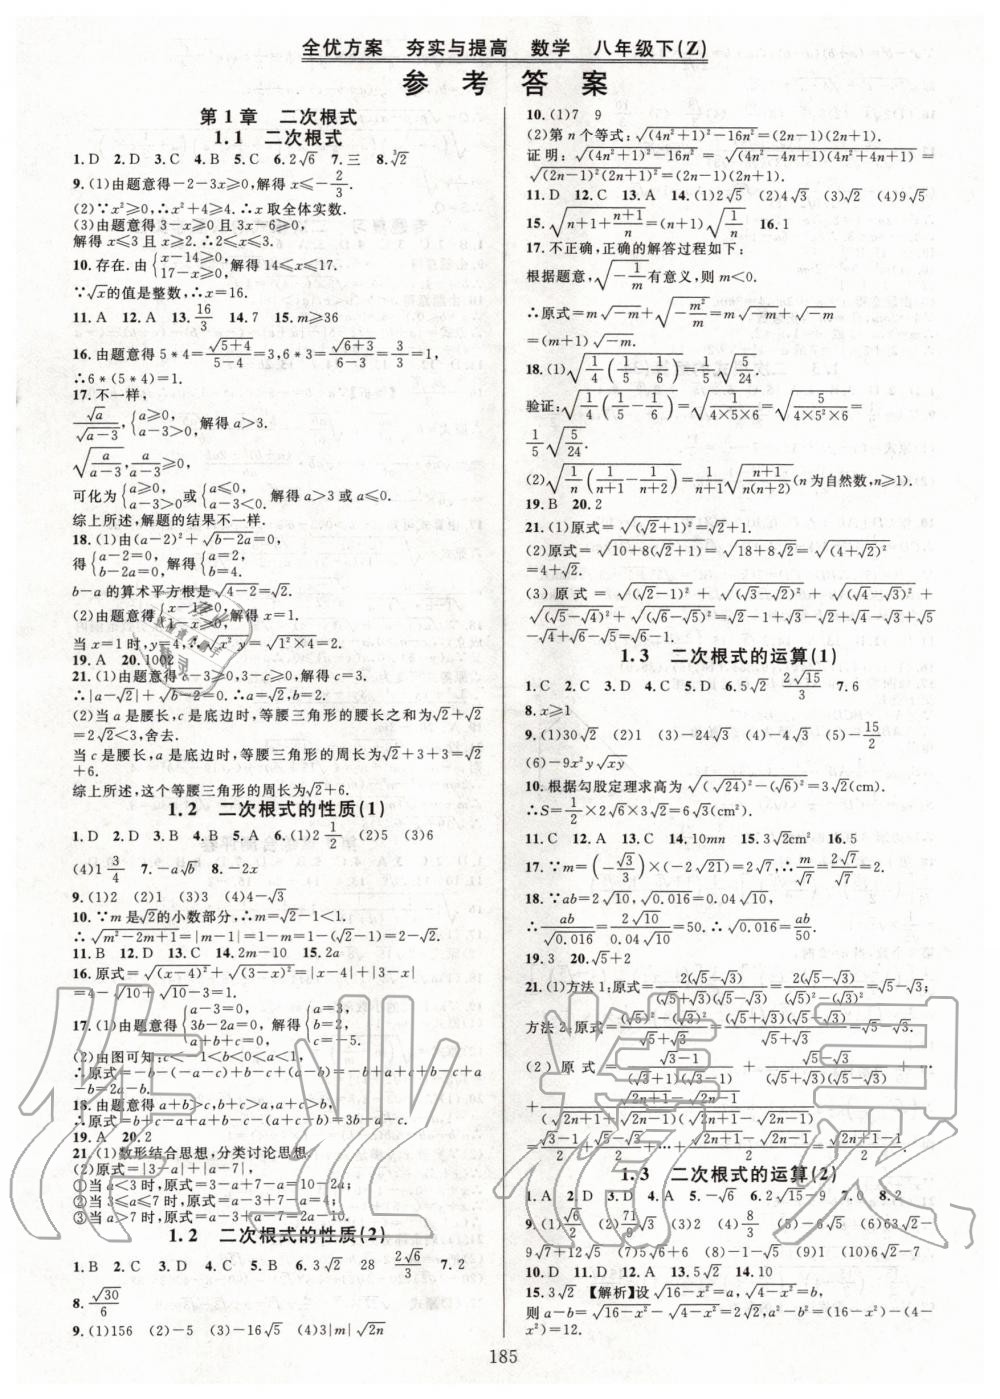 全优方案　夯实与提高　数学　八年级下(Z)
参 考 答 案
第1章　二次根式
1.1　二次根式
1. D　2. D　3. C　4. B　5. C　6. 2√6　7. 三　8. ∛2
9. (1)由题意得－2－3x≥0,解得 x≤－2/3.
(2)∵x²≥0,∴x²+4≥4.∴x 取全体实数.
(3)由题意得 3－x≥0 且 3x－6≥0,
解得 x≤3 且 x≥2.∴2≤x≤3.
10. 存在.由{x－14≥0, 17－x≥0,解得 14≤x≤17.
∵√x的值是整数,∴x=16.
11. A　12. A　13. 16/3　14. 7　15. m≥36
16. 由题意得 5*4=√(5+4)/(5－4)=3,6*3=√(6+3)/(6－3)=3/3=1,
∴6*(5*4)=1.
17. 不一样,
√a/√(a－3),{a≥0, a－3>0,解得 a>3.
√(a/(a－3)),a/(a－3)≥0,
可化为{a≥0, a－3>0或{a≤0, a－3<0.解得 a>3 或 a≤0.
综上所述,解题的结果不一样.
18. (1)由(a－2)²+√(b－2a)=0,
得{a－2=0, b－2a=0,解得{a=2, b=4.
b－a 的算术平方根是√(4－2)=√2.
(2)由题意得{x－1≥0, 1－x≥0,解得 x=1.
当 x=1 时,y=4,∴√(x²y)=√(1²×4)=2.
19. A　20. 1002
21. (1)由题意得 c－3≥0,3－c≥0,解得 c=3,
∴|a－√2|+√(b－2)=0.∴a=√2,b=2.
(2)当 a 是腰长,c 是底边时,等腰三角形的腰长之和为√2+√2
=2√2<3,舍去.
当 c 是腰长,a 是底边时,等腰三角形的周长为√2+3+3=√2
+6.
综上所述,这个等腰三角形的周长为√2+6.
1.2　二次根式的性质(1)
1. D　2. D　3. B　4. B　5. A　6. (1)2 1/2　(2)5　(3)6
(4)1 3/4　7. －a√b　8. －2x
9. (1)2　(2)1　(3)3　(4)4－√3
10. ∵m 是√2的小数部分,∴m=√2－1<1.
∴√(m²－2m+1)=|m－1|=1－m=1－(√2－1)=2－√2.
11. B　12. D　13. C　14. 2m－10　15. 2a
16. 原式=√(x－4)²+√(3－x)²=|x－4|+|3－x|
=4－√10+√10－3=1.
17. (1)由题意得{a－3=0, 3b－2a=0, a+b+c=0,解得{a=3, b=2, c=－5.
(2)由图可知:c<－1<b<0<1<a,
∴原式=－b－(－a－c)+(－b－c)+(－b+a)=－b+a+c－b－c－b+c
－a－b=2a－b.
18. 由题意得 a+b>c,b+c>a,a+c>b,
∴原式=b+c－a+a+b－c－(a－c+b)=3b+a－c.
19. A　20. 2
21. (1)数形结合思想,分类讨论思想
(2)原式=|3－a|+|a－7|,
①当 a<3 时,原式=3－a+7－a=10－2a;
②当 3≤a≤7 时,原式=a－3+7－a=4;
③当 a>7 时,原式=a－3+a－7=2a－10.
1.2　二次根式的性质(2)
1. B　2. C　3. C　4. A　5. B　6. 3√2　28　2√6/3　7. 2
8. √30/6
9. (1)156　(2)－5　(3)－16√5　(4)3|m|√(2n)
10. (1)7　9
(2)第 n 个等式:√((4n²+1)²－16n²)=(2n－1)(2n+1).
证明:√((4n²+1)²－16n²)=√((4n²－4n+1)(4n²+4n+1))=
√((2n－1)²(2n+1)²)=(2n－1)(2n+1).
11. D　12. C　13. A　14. (1)2√5　(2)4√3　(3)√2　(4)9√5
15. √(n+1+(n+1)/n)=(n+1)√((n+1)/n)　16. 1
17. 不正确,正确的解答过程如下:
根据题意,√(－1/m)有意义,则 m<0.
∴原式=m√(－m)+√(－m²/m)=m√(－m)+√(－m)
=(m+1)√(－m).
18. (1)√(1/4(1/5－1/6))=1/5√(5/24).
验证:√(1/4(1/5－1/6))=√(1/(4×5×6))=√(5/(4×5²×6))=
1/5√(5/24).
(2)√(1/n(1/(n+1)－1/(n+2)))=1/(n+1)√((n+1)/(n(n+2)))(n 为自然数,n≥1).
19. B　20. 2
21. (1)原式=√(√2+1)²=√2+1.
(2)原式=√(10+8(√2+1))=√(18+8√2)=√(4+√2)²
=4+√2.
(3)原式=√(√2－1)²+√(√3－√2)²+√(√4－√3)²+
√(√5－√4)²+√(√6－√5)²=√2－1+√3－√2+√4－√3+√5
－√4+√6－√5=√6－1.
1.3　二次根式的运算(1)
1. C　2. C　3. D　4. B　5. D　6. 5√2　2√15/3　7. 6
8. x≥1
9. (1)30√2　(2)1　(3)－24√3　(4)4√2　(5)－15/2
(6)－9x²y√(xy)
10. 根据勾股定理求高为√((√24)²－(√6)²)=3√2(cm).
∴S=1/2×2√6×3√2=6√3(cm²).
11. C　12. A　13. C　14. 10mn　15. 3√2cm²　16. 5
17. ∵m=(－√3/3)×(－2√21)=2√7,∴m/√7=2√7/√7=2.
18. ∵ab=2√10,√0.016=0.04√10,
∴ab/√0.016=2√10/(0.04√10)=50.∴√0.016=ab/50.
19. 3　20. √5+2
21. (1)方法1:原式=2(√5－√3)/((√5+√3)(√5－√3))=2(√5－√3)/2=√5－√3.
方法2:原式=((√5)²－(√3)²)/(√5+√3)=(√5+√3)(√5－√3)/(√5+√3)=√5－√3.
(2)原式=(√3－1)/((√3+1)(√3－1))+(√5－√3)/((√5+√3)(√5－√3))+…
+(√(2n+1)－√(2n－1))/((√(2n+1)+√(2n－1))(√(2n+1)－√(2n－1)))
=(√3－1)/2+(√5－√3)/2+…+(√(2n+1)－√(2n－1))/2=(√(2n+1)－1)/2.
1.3　二次根式的运算(2)
1. A　2. D　3. B　4. A　5. －√6　6. 2√15－9　7. 0　8. 2
9. (1)√6/2　(2)71/9√3　(3)－2　(4)8/3　(5)－16　(6)63√2－
9√7+12√5
10. D　11. D　12. A　13. 5√2　14. 10
15. 3√2　【解析】设√(16－x²)=a,√(4－x²)=b,
则 a－b=√(16－x²)－√(4－x²)=2√2,a²－b²=(16－x²)－(4－
x²)=12.
185
作业精灵